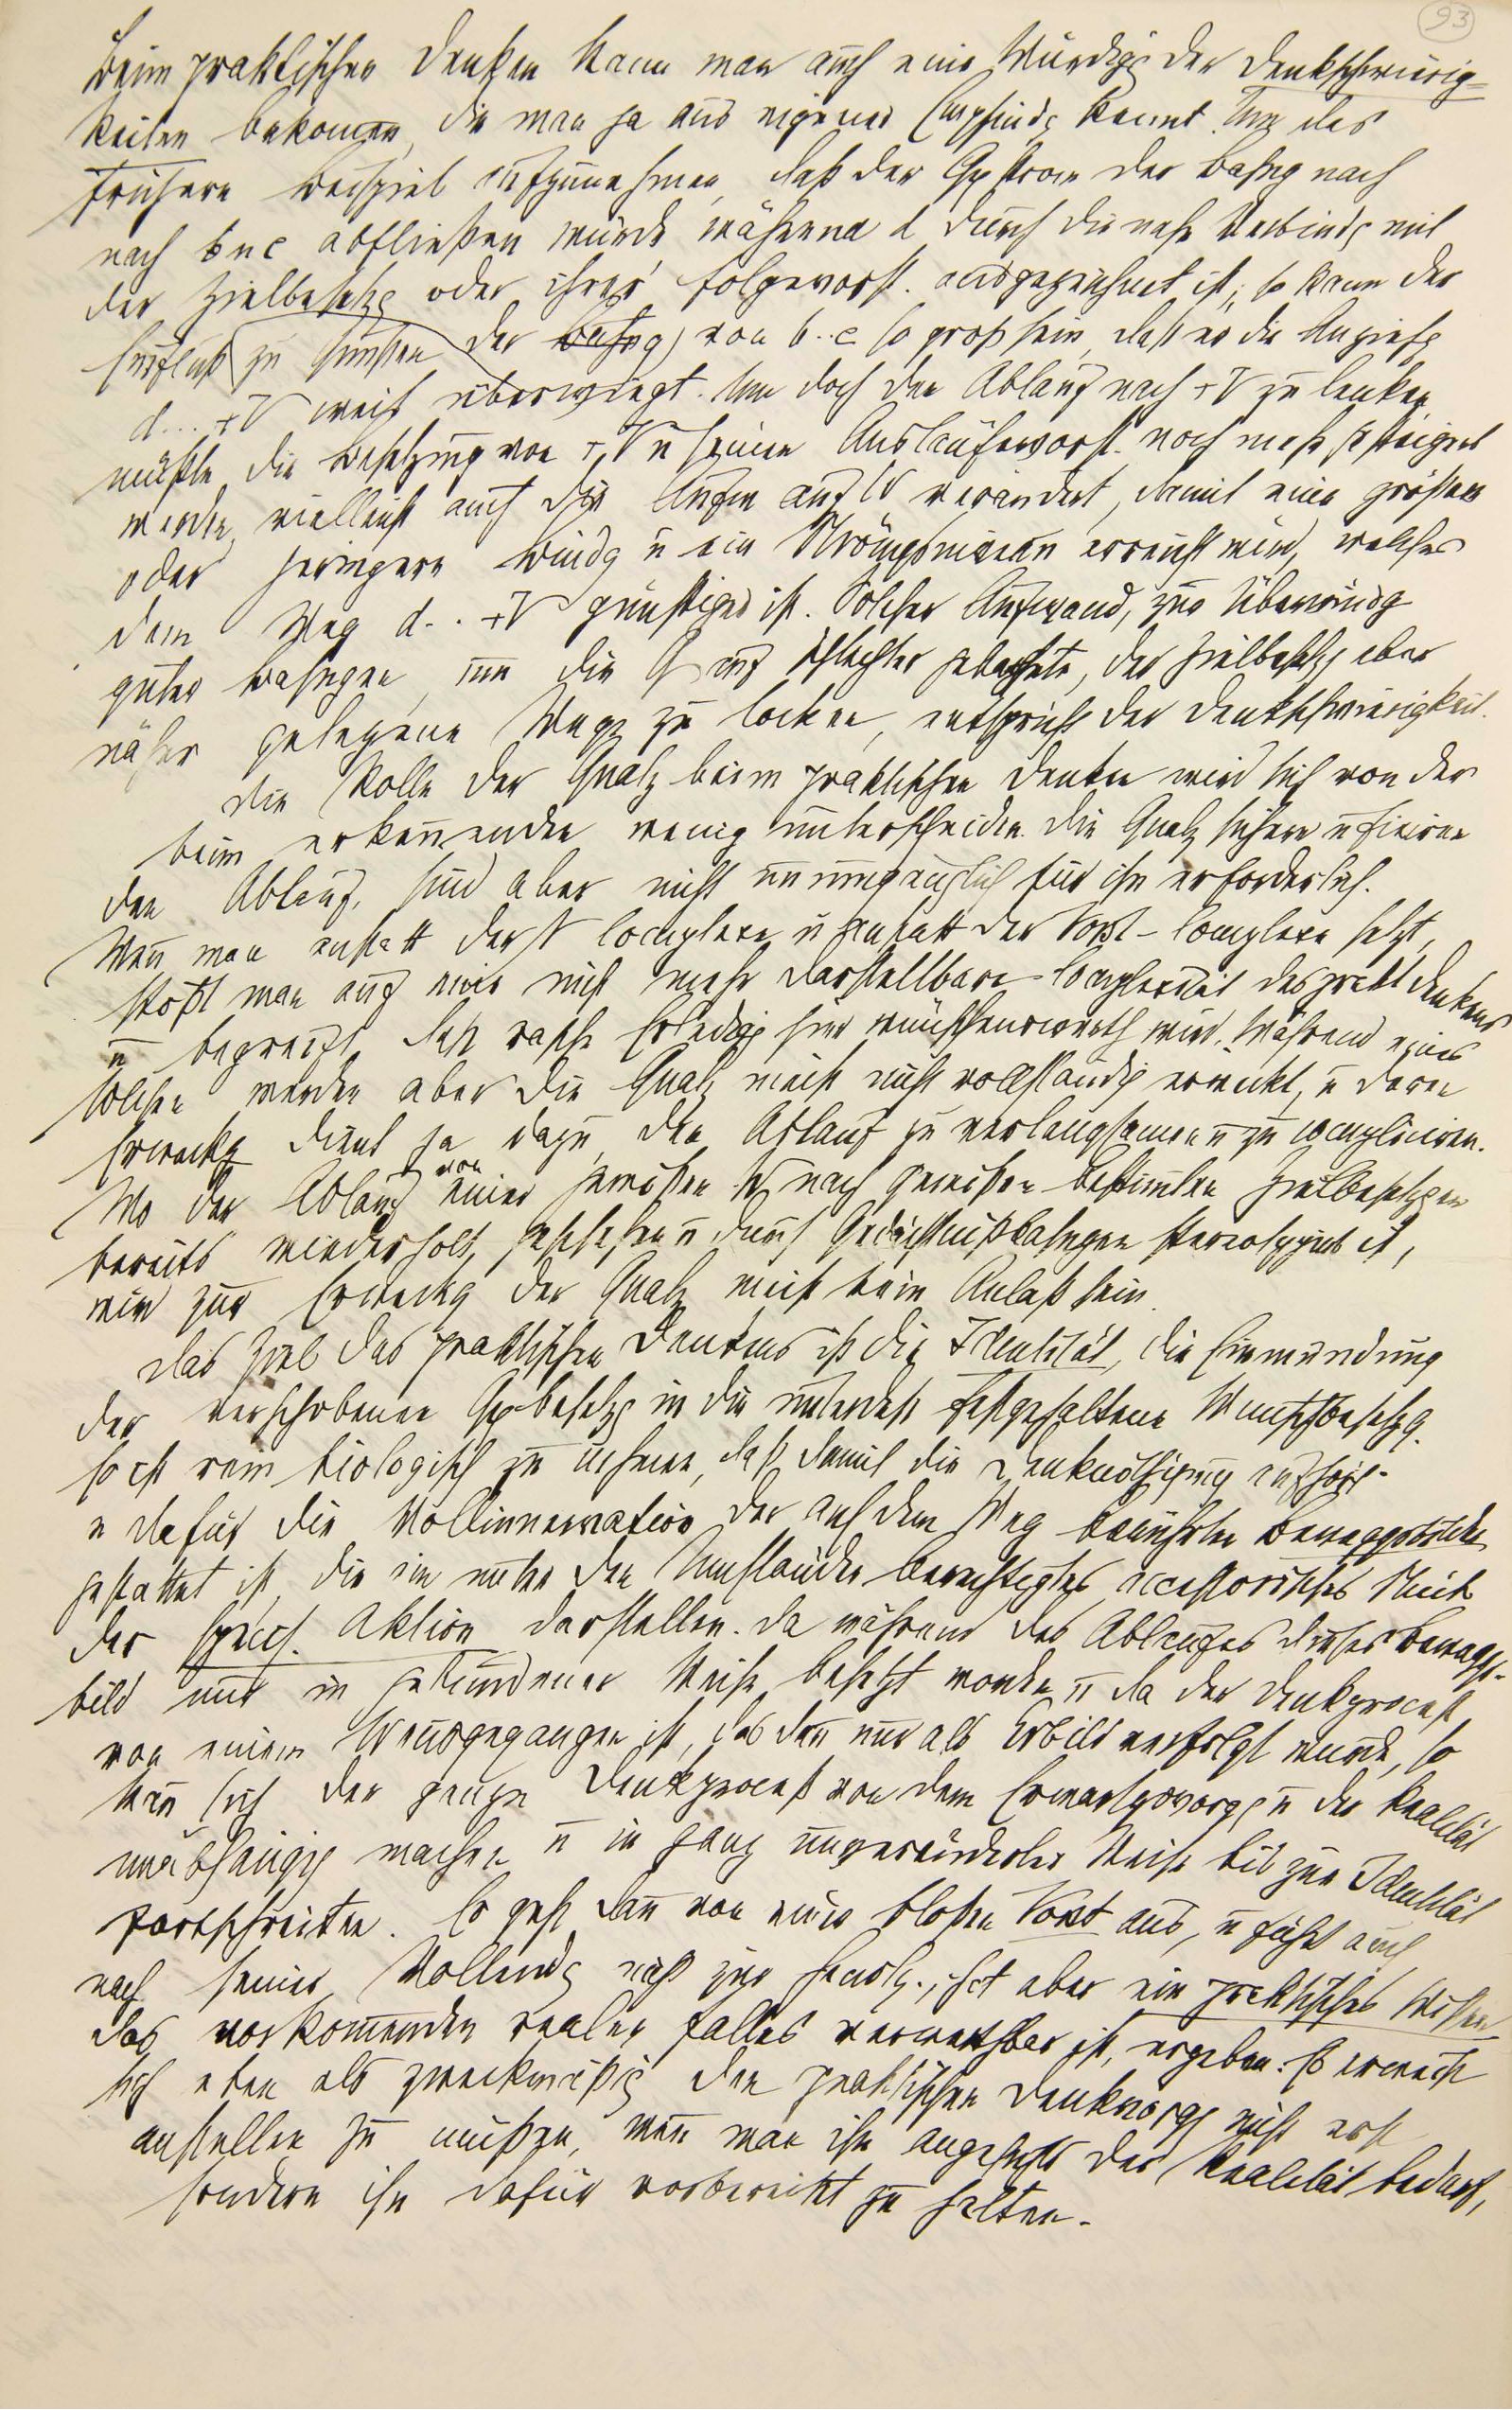 93
Beim praktischen Denken kann man auch eine Würdigg der Denkschwierig=
keiten bekomen, die man ja aus eigener Empfindg kennt. Um das
frühere Beispiel aufzunehmen, daß der Qη strom der Bahng nach
nach b u c abfließen würde während d durch die nahe Verbindg mit
der Zielbesetzg oder ihrer Folgevorst. ausgezeichnet ist, so kann der
Einfluß zu Gunsten der Bahng von b..c so groß sein, daß er die Anziehg
d...+V weit überwiegt. Um doch den Ablauf nach +V zu lenken,
müßte die Besetzung von +V u seinen Ausläufervorst. noch mehr gesteigert
werden, vielleicht auch die Aufm auf W verändert, damit eine größere
oder geringere Bindg u ein Strömgsniveau erreicht wird, welches
dem Weg d...+V günstiger ist. Solcher Aufwand, zur Überwindg
guter Bahngen, um die Q auf schlechter gebahnte, der Zielbesetzg aber
näher gelegene Wege zu locken, entspricht der Denkschwierigkeit.
Die Rolle der Qualz beim praktischen Denken wird sich von der
beim erkenenden wenig unterscheiden. Die Qualz sichern u fixiren
den Ablauf, sind aber nicht unumgänglich für ihn erforderlich.
Wen man anstatt der N Complexe u anstatt der Vorst – Complexe setzt,
stößt man auf eine nicht mehr darstellbare Complexität des prakt Denkens
u begreift, daß rasche Erledigg hier wünschenswerth wird. Während eines
solchen werden aber die Qualz meist nicht vollständig erweckt, u deren
Erweckg dient ja dazu, den Ablauf zu verlangsamen u zu compliciren.
Wo der Ablauf von einer gewißen W nach gewißen bestimten Zielbesetzgen
bereits wiederholt geschehen u durch Gedächtnißbahngen stereotypirt ist,
wird zur Erweckg der Qualz meist kein Anlaß sein.
Das Ziel des praktischen Denkens ist die Identität, die Einmündung
der verschobenen Qη besetzg in die unterdeß festgehaltene Wunschbesetzg.
Es ist rein biologisch zu nehmen, daß damit die Denknöthigung aufhört
u dafür die Vollinnervation der auf dem Weg berührten Beweggsbilder
gestattet ist, die ein unter den Umständen berechtigtes accessorisches Stück
der specif. Aktion darstellen. Da während des Ablaufes dieses Beweggs-
bild nur in gebundener Weise besetzt worden u da der Denkproceß
von einem W ausgegangen ist, das dan nur als Erbild verfolgt wurde, so
kan sich der ganze Denkproceß von dem Erwartgsvorgg u der Realität
unabhängig machen u in ganz unveränderter Weise bis zur Identität
fortschreiten. Er geht dan von einer bloßen Vorst aus, u führt auch
nach seiner Vollendg nicht zur Handlg., hat aber ein praktisches Wißen
das vorkommenden realen Falles verwerthbar ist, ergeben. Es erweist
sich eben als zweckmäßig den praktischen Denkvorgg nicht erst
anstellen zu müßen, wen man ihn angesichts der Realität bedarf,
sondern ihn dafür vorbereitet zu halten.